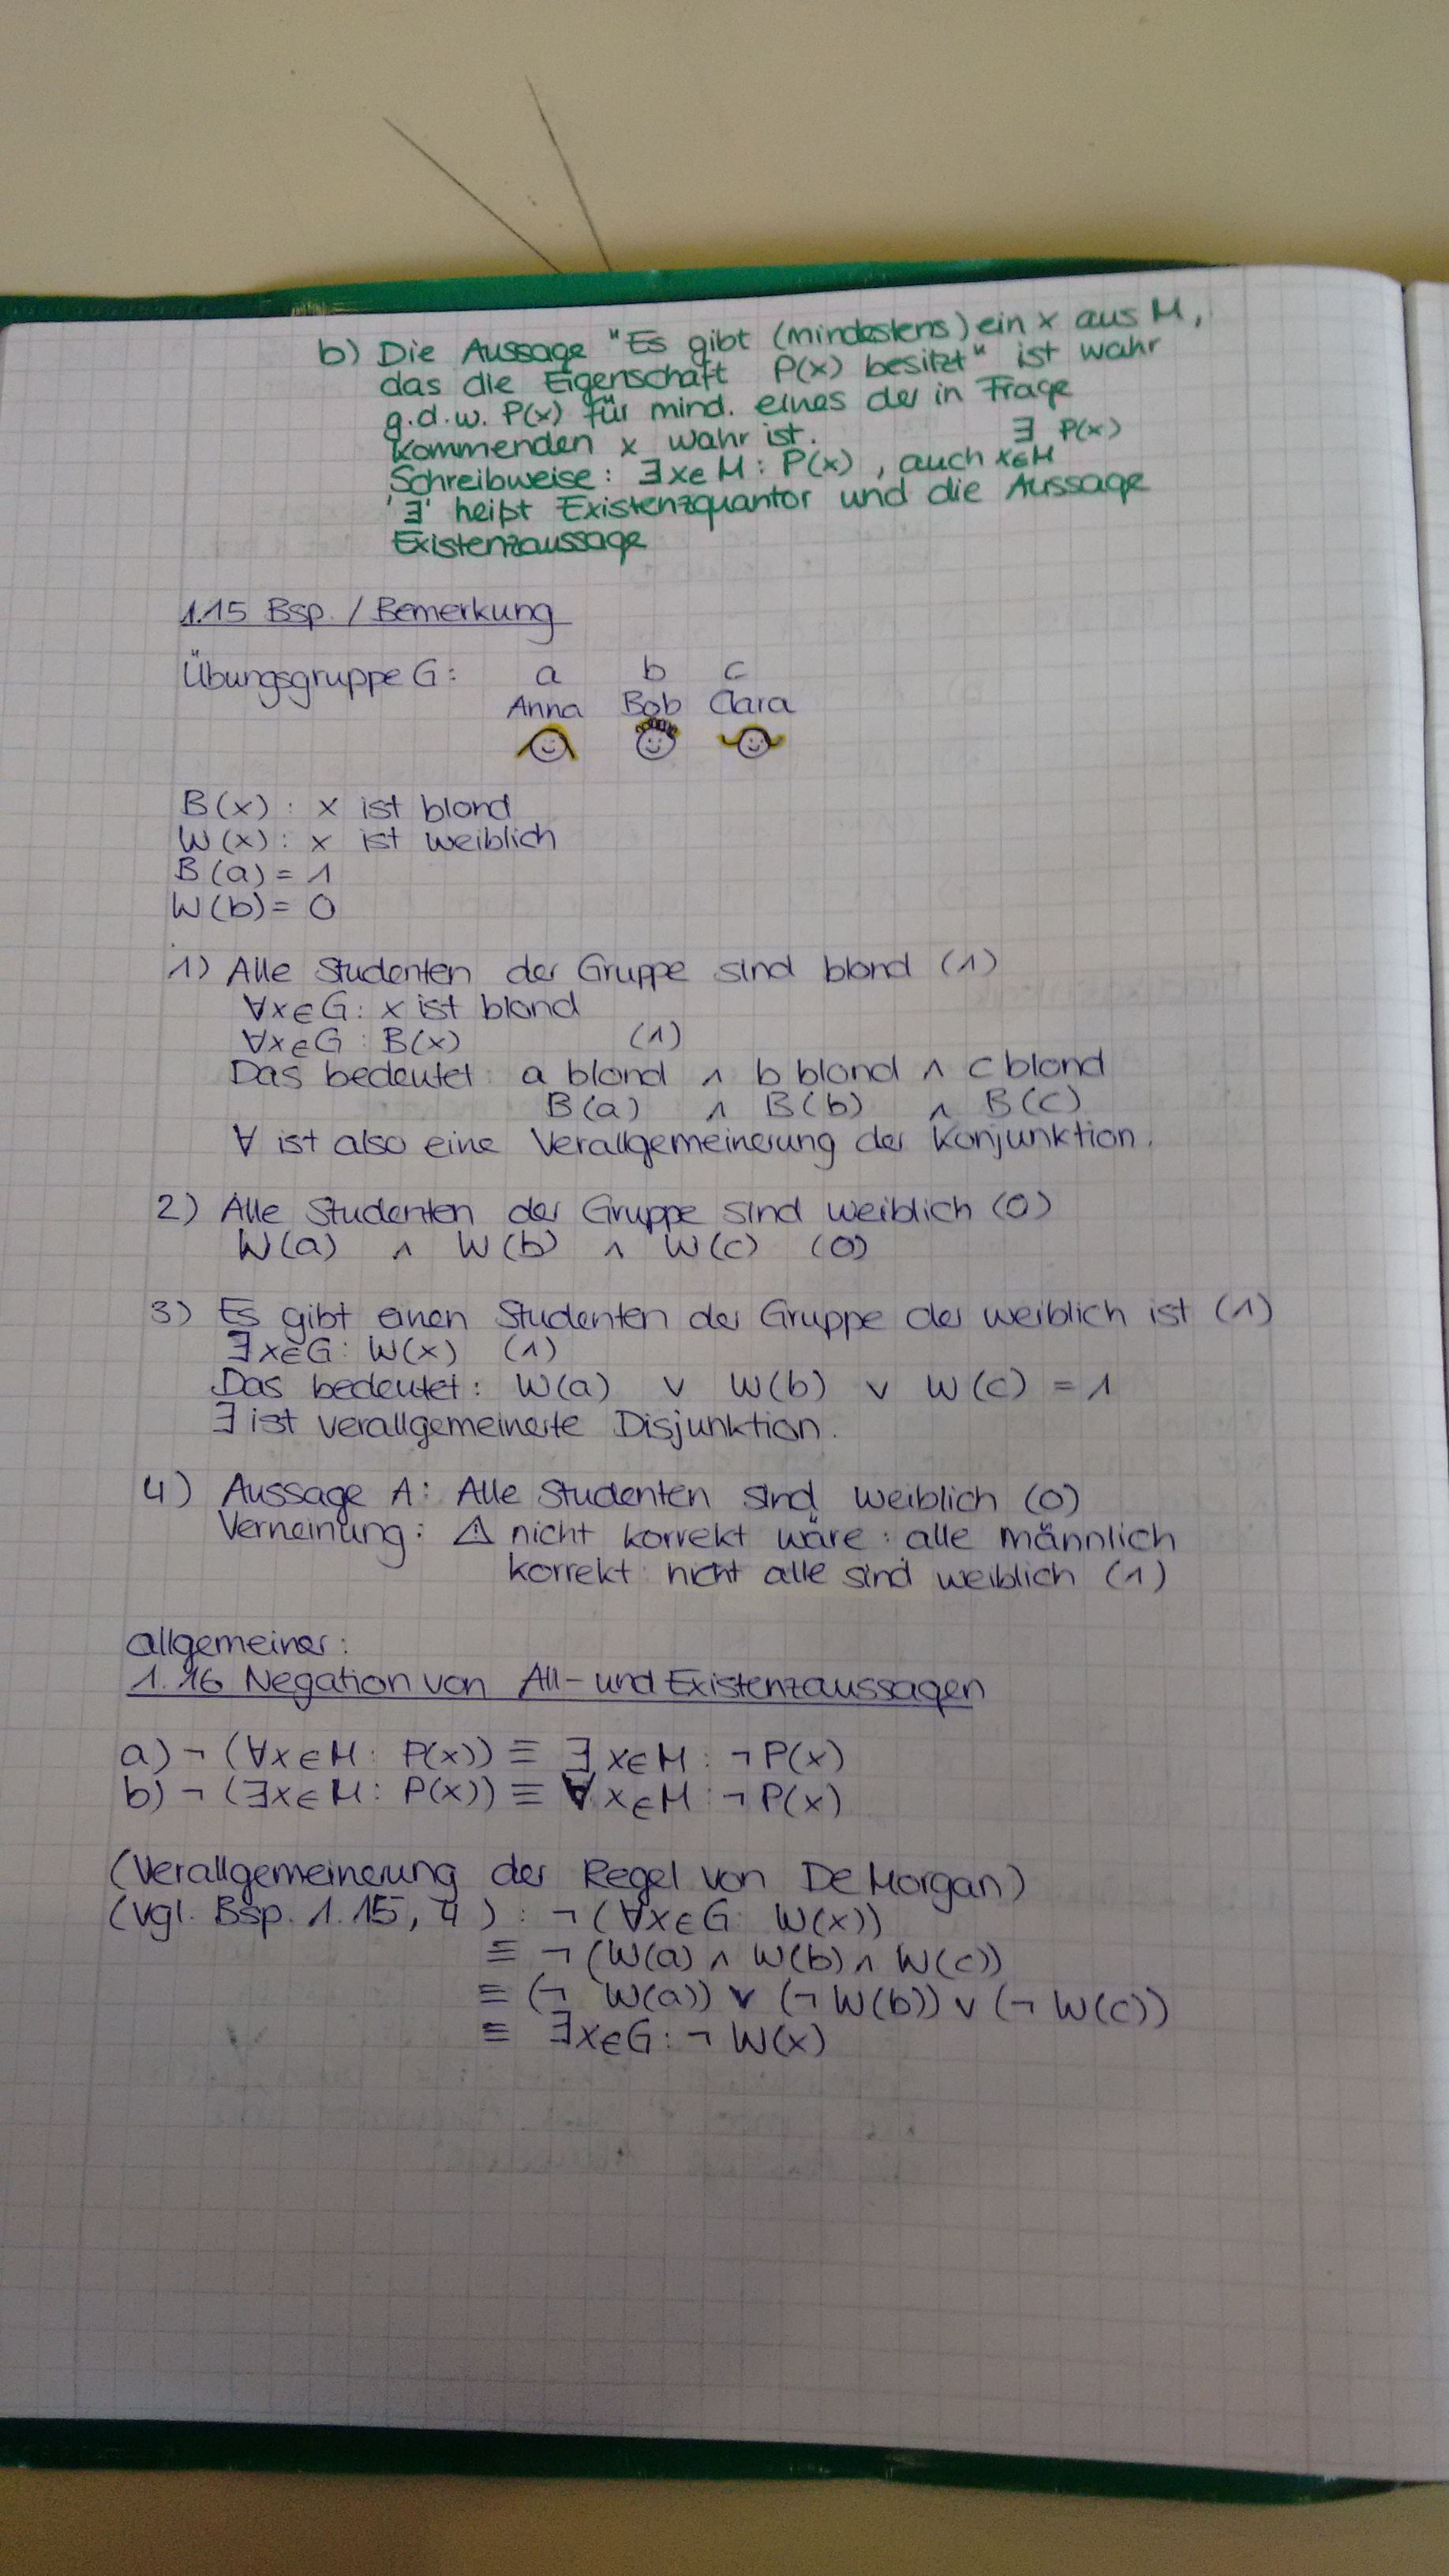 b) Die Aussage "Es gibt (mindestens) ein x aus M,
das die Eigenschaft P(x) besitzt" ist wahr
g.d.w. P(x) für mind. eines der in Frage
kommenden x wahr ist.
Schreibweise: ∃x∈M: P(x), auch ∃ P(x)
x∈M
'∃' heißt Existenzquantor und die Aussage
Existenzaussage
1.15 Bsp. / Bemerkung
Übungsgruppe G: a b c
Anna Bob Clara
B(x): x ist blond
W(x): x ist weiblich
B(a) = 1
W(b) = 0
1) Alle Studenten der Gruppe sind blond (1)
∀x∈G: x ist blond
∀x∈G: B(x) (1)
Das bedeutet: a blond ∧ b blond ∧ c blond
B(a) ∧ B(b) ∧ B(c)
∀ ist also eine Verallgemeinerung der Konjunktion.
2) Alle Studenten der Gruppe sind weiblich (0)
W(a) ∧ W(b) ∧ W(c) (0)
3) Es gibt einen Studenten der Gruppe der weiblich ist (1)
∃x∈G: W(x) (1)
Das bedeutet: W(a) ∨ W(b) ∨ W(c) = 1
∃ ist verallgemeinerte Disjunktion.
4) Aussage A: Alle Studenten sind weiblich (0)
Verneinung: ⚠ nicht korrekt wäre: alle männlich
korrekt: nicht alle sind weiblich (1)
allgemeiner:
1.16 Negation von All- und Existenzaussagen
a) ¬ (∀x∈M: P(x)) ≡ ∃ x∈M: ¬ P(x)
b) ¬ (∃x∈M: P(x)) ≡ ∀ x∈M: ¬ P(x)
(Verallgemeinerung der Regel von De Morgan)
(vgl. Bsp. 1.15, 4): ¬ (∀x∈G: W(x))
≡ ¬ (W(a) ∧ W(b) ∧ W(c))
≡ (¬ W(a)) ∨ (¬ W(b)) ∨ (¬ W(c))
≡ ∃x∈G: ¬ W(x)